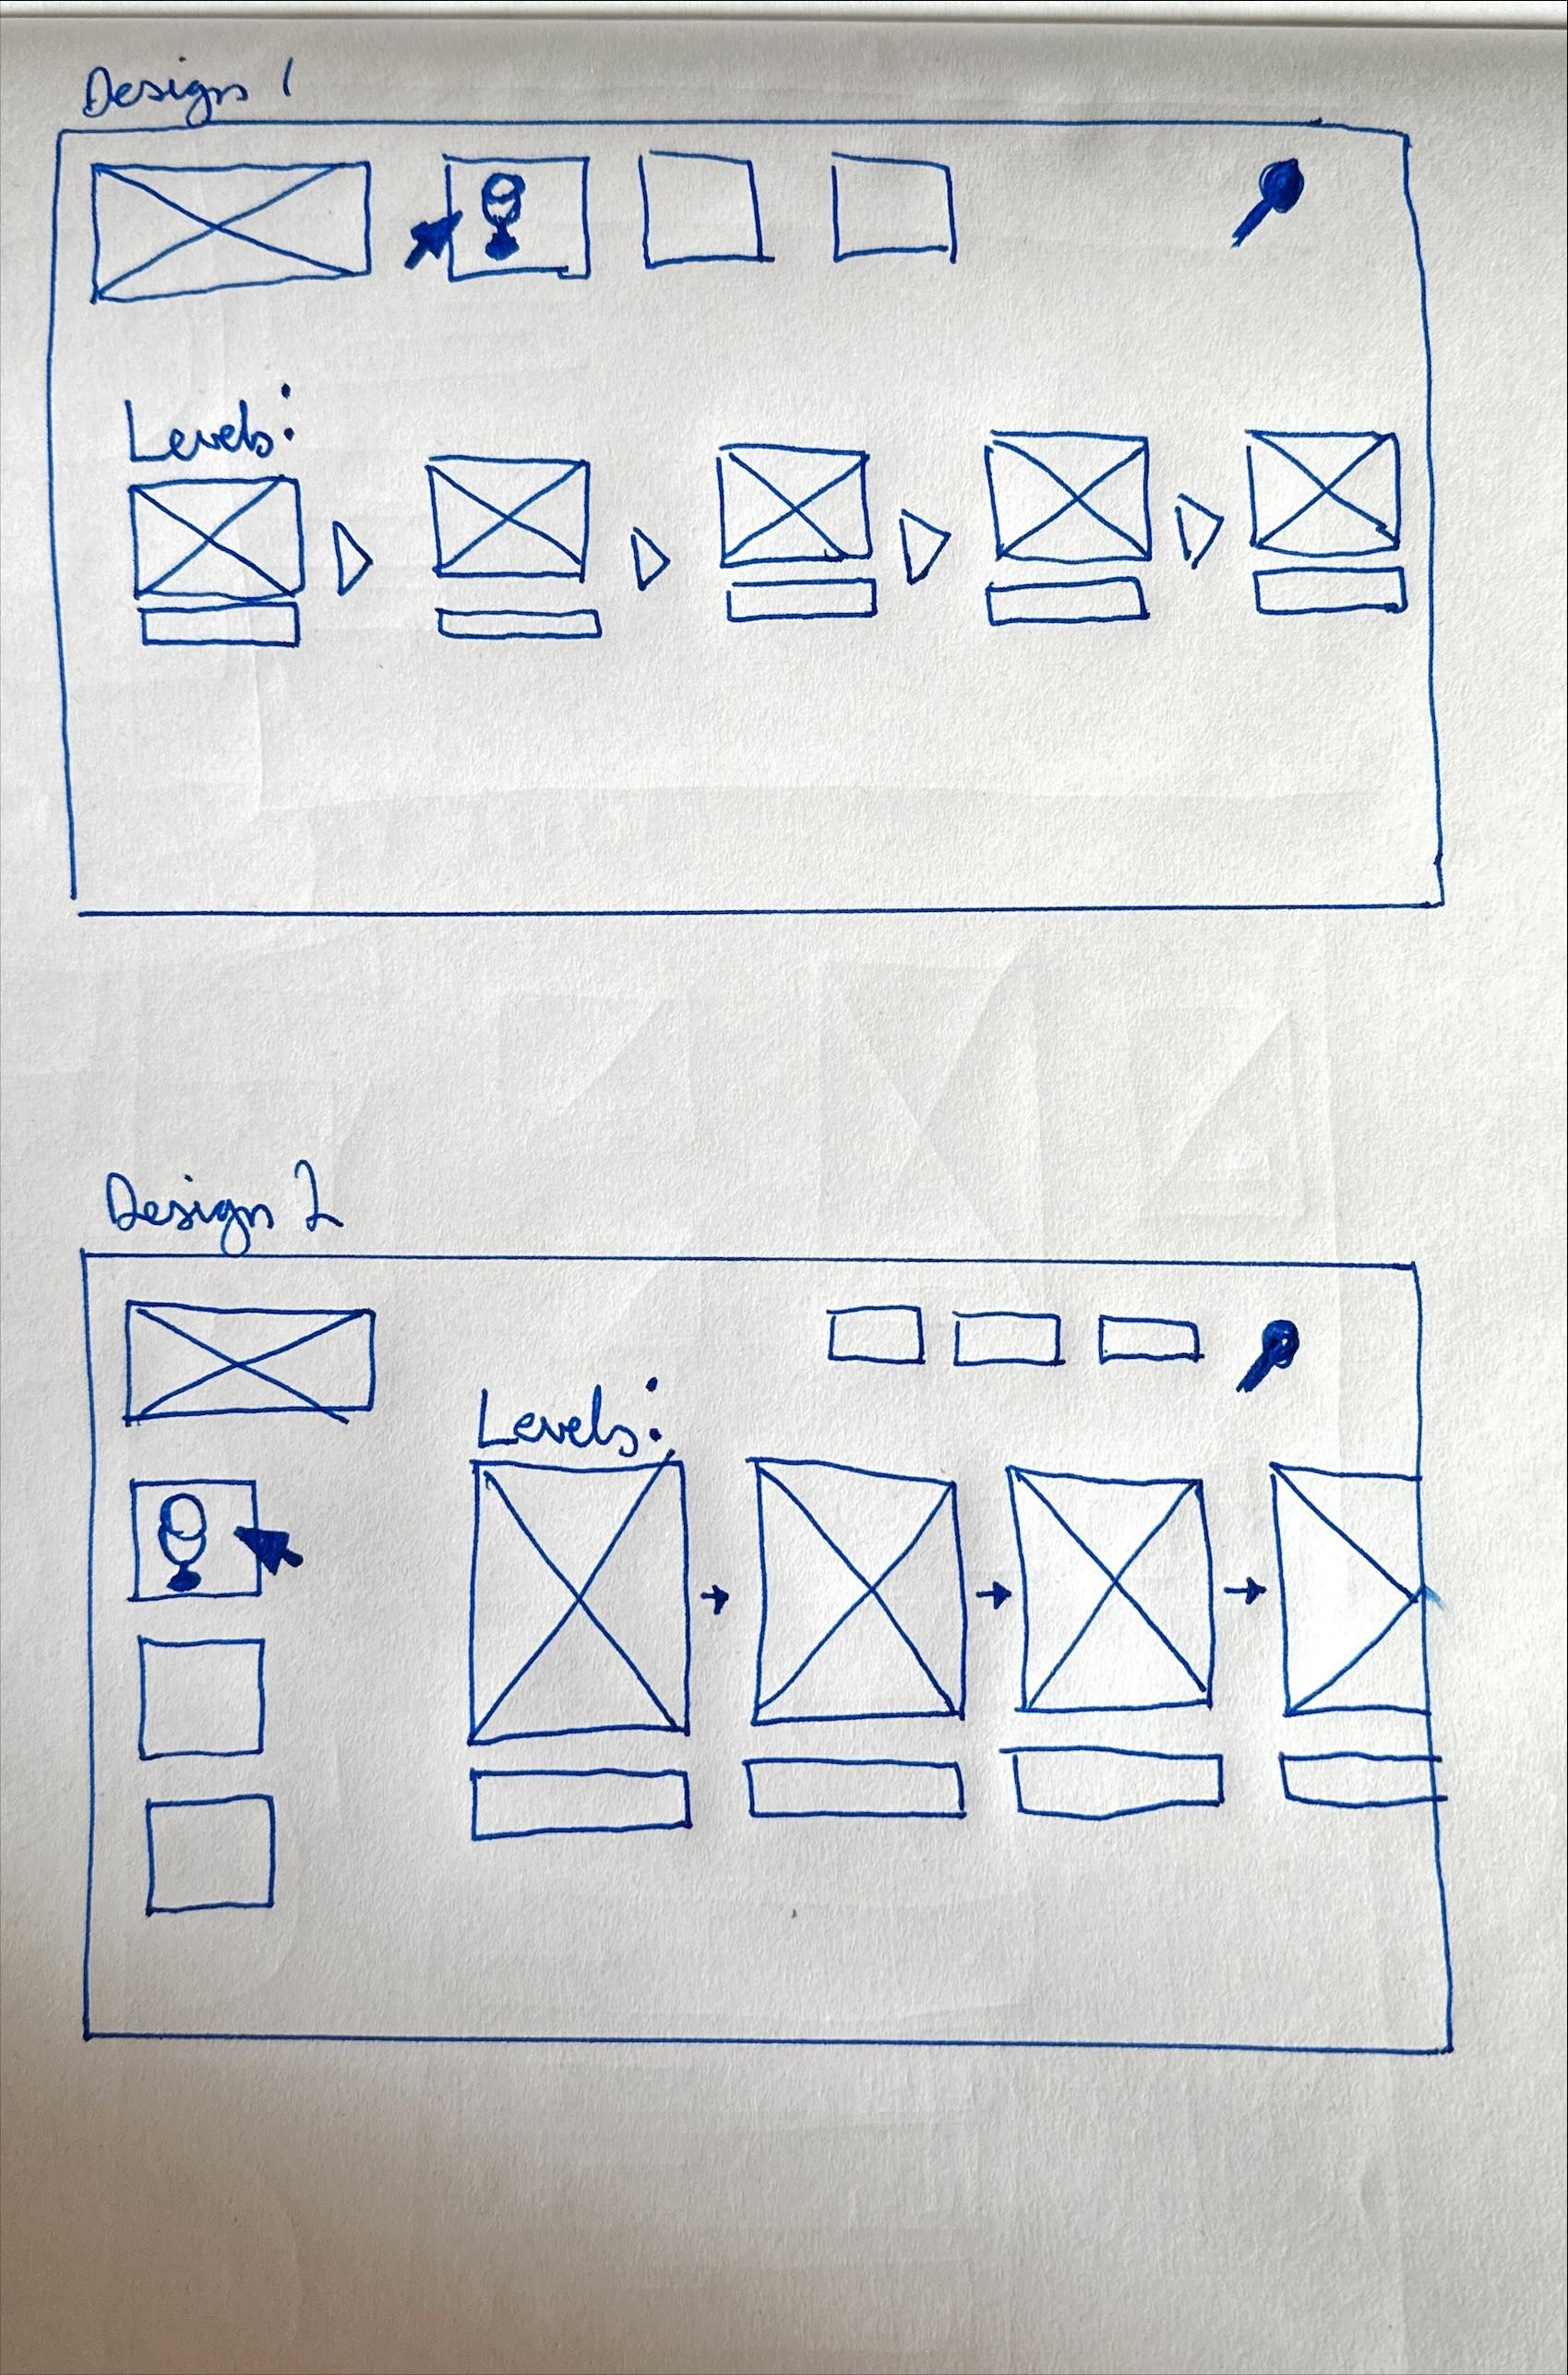 Design 1
Levels:
Design 2
Levels: